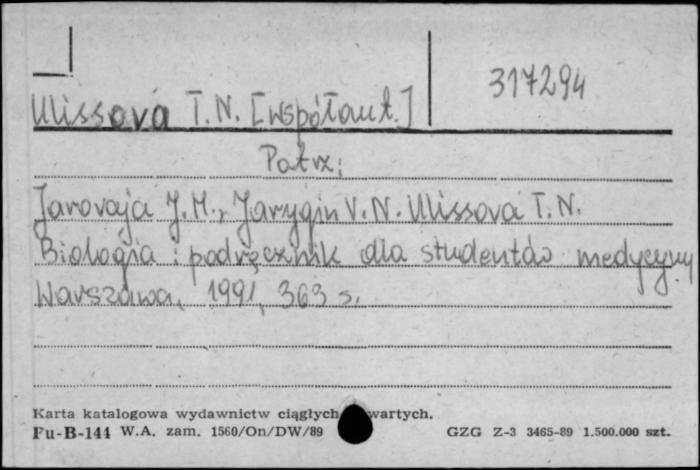 317294
Ulissova T. N. [współaut.]
Patrz:
Jarovaja J. M., Jarygin V. N. Ulissova T. N.
Biologia : podręcznik dla studentów medycyny
Warszawa, 1991, 363 s.
Karta katalogowa wydawnictw ciągłych wartych.
Pu-B-144 W.A. zam. 1560/On/DW/89 GZG Z-3 3465-89 1.500.000 szt.